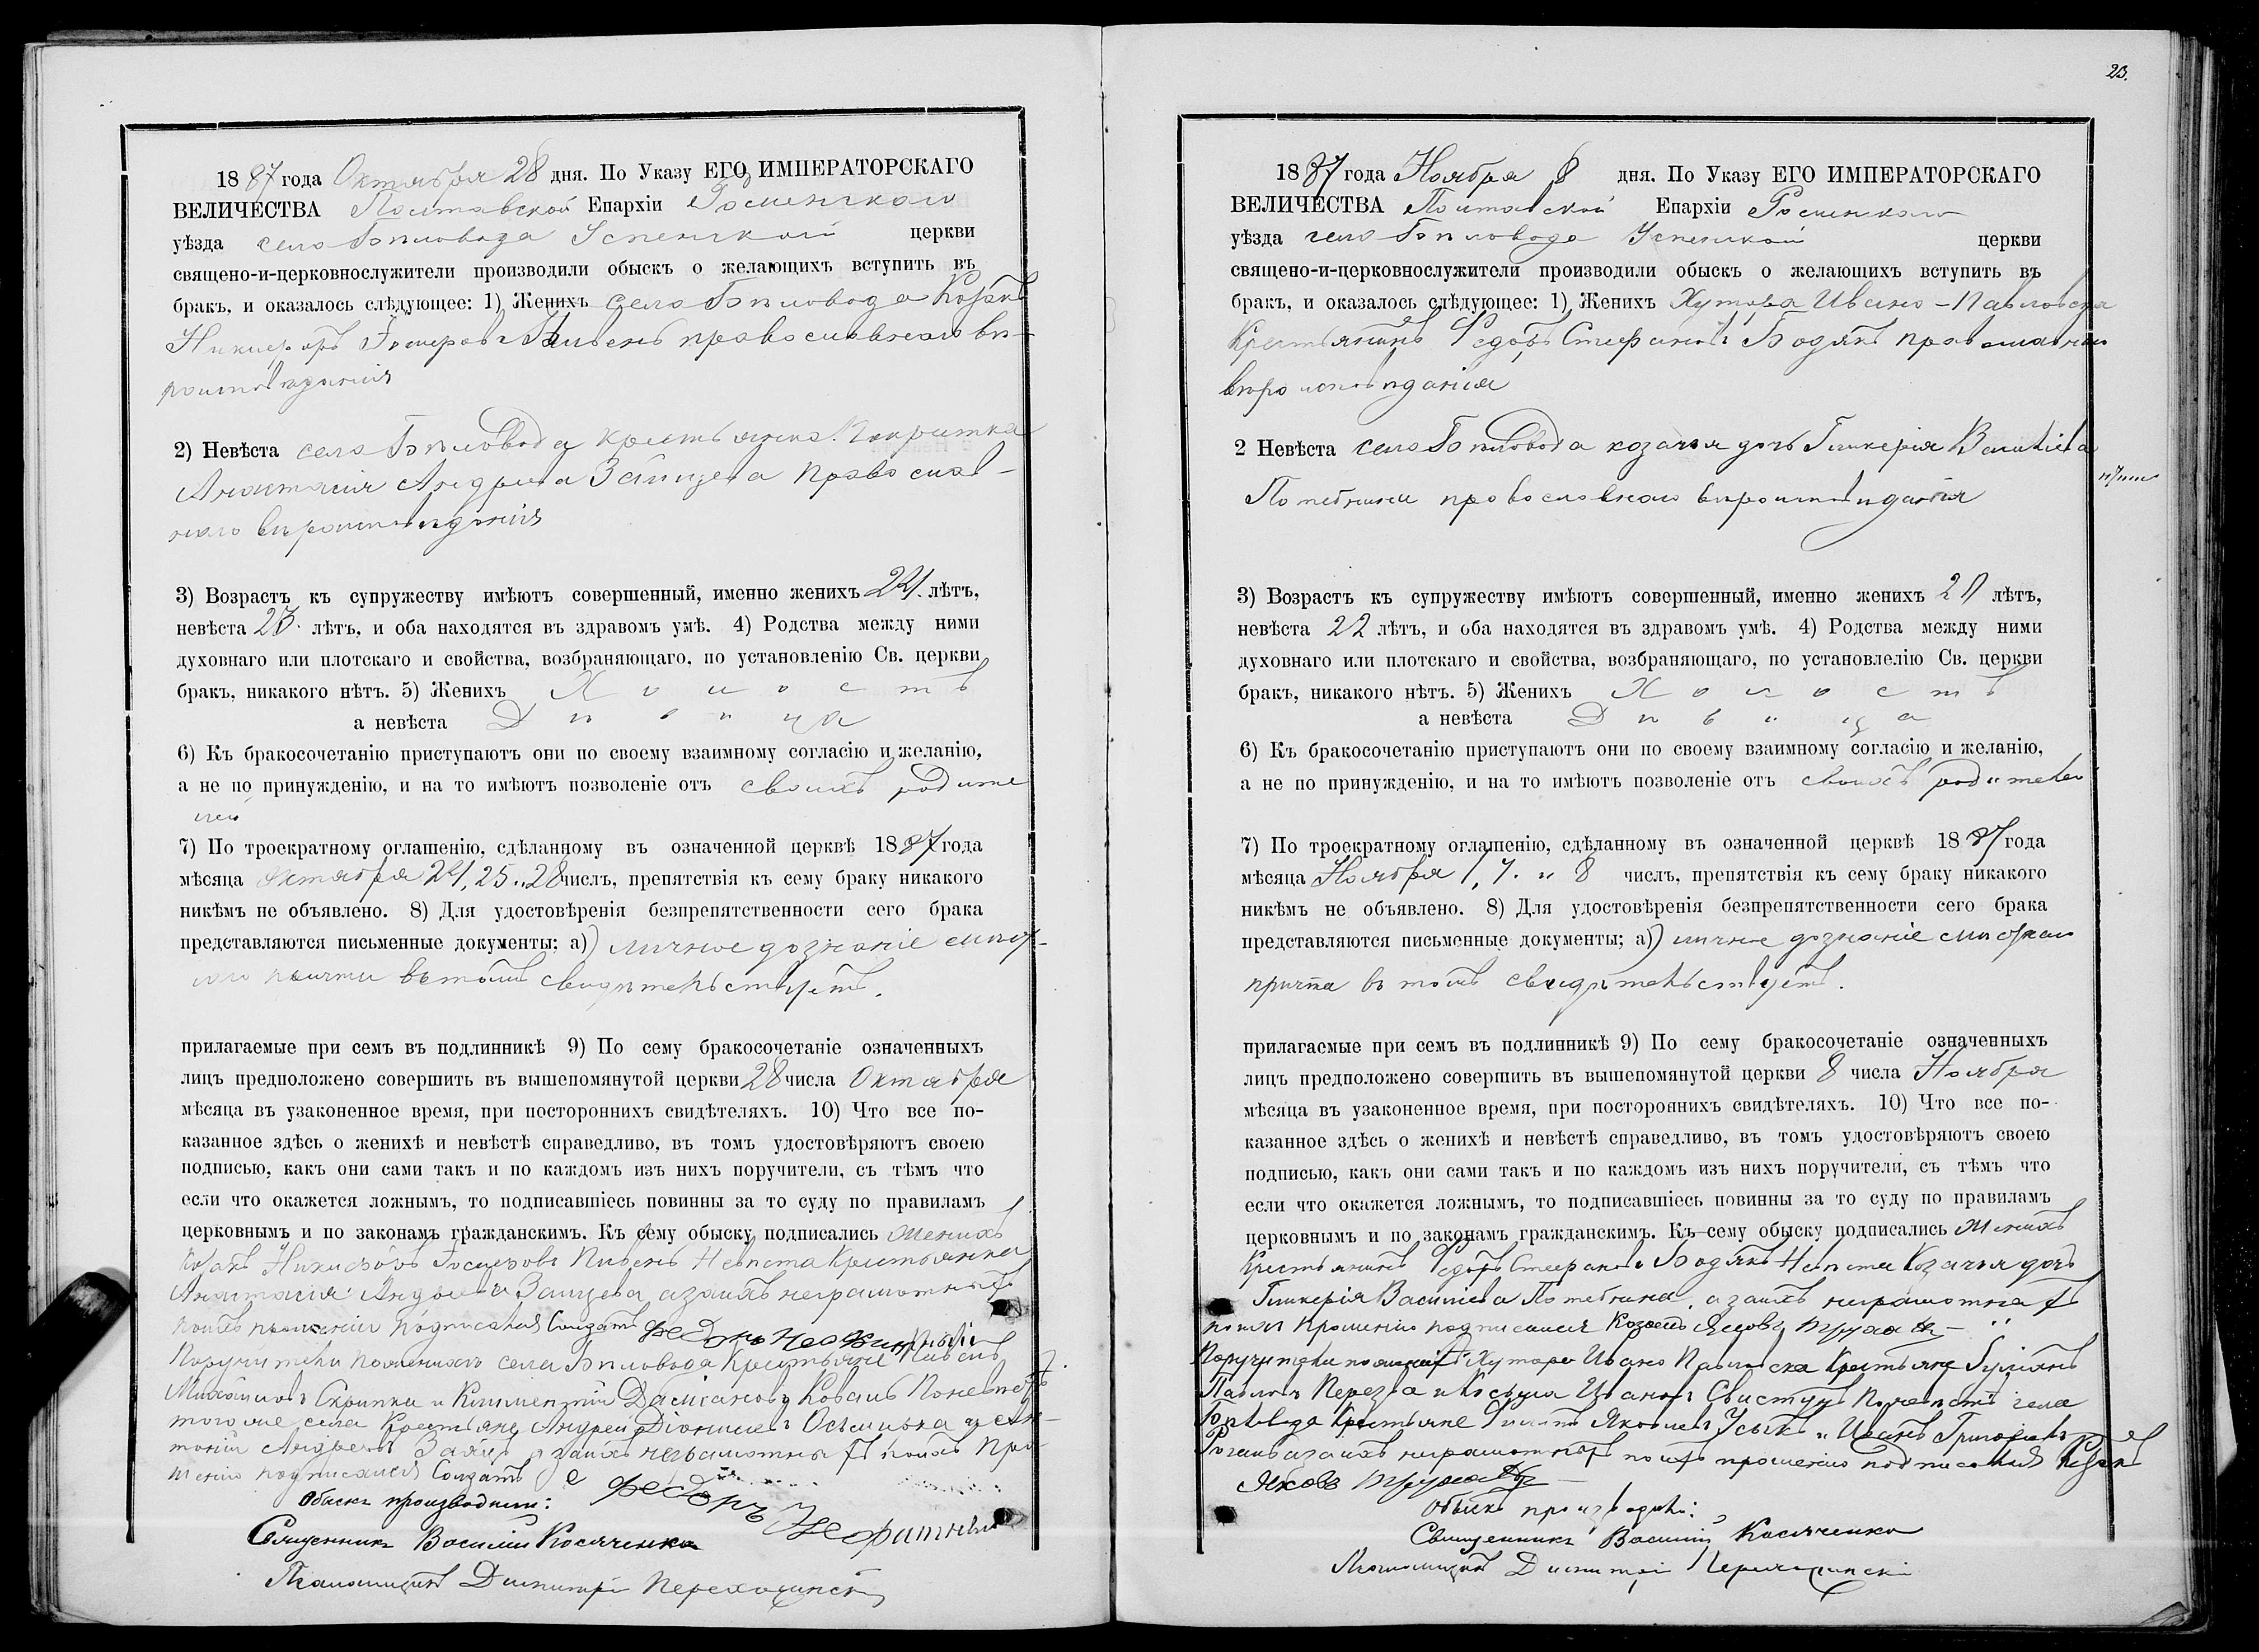 1887 года Октября 28 дня. По Указу ЕГО ИМПЕРАТОРСКАГО
ВЕЛИЧЕСТВА Полтавской Епархіи Роменскаго
уѣзда село Бѣловода Успенской церкви
священо-и-церковнослужители производили обыскъ о желающихъ вступить въ
бракъ, и оказалось слѣдующее: 1) Женихъ села Бѣловода Козакъ
Никифоръ православнаго вѣ-
роисповѣданія
2) Невѣста села Бѣловода крестьянка Покрытка
Анастасія Андреева Заицева православ-
наго вѣроисповѣданія
3) Возрастъ къ супружеству имѣютъ совершенный, именно женихъ 24. лѣтъ,
невѣста 23. лѣтъ, и оба находятся въ здравомъ умѣ. 4) Родства между ними
духовнаго или плотскаго и свойства, возбраняющаго, по установленію Св. церкви
бракъ, никакого нѣтъ. 5) Женихъ Холостъ
а невѣста Дѣвица
6) Къ бракосочетанію приступаютъ они по своему взаимному согласію и желанію,
а не по принужденію, и на то имѣютъ позволеніе отъ своихъ родите
лей
7) По троекратному оглашенію, сдѣланному въ означенной церквѣ 1887 года
мѣсяца Октября 24, 25 и 28 числъ, препятствія къ сему браку никакого
никѣмъ не объявлено. 8) Для удостовѣренія безпрепятственности сего брака
представляются письменные документы; а) личное дознаніе
причта въ томъ свидѣтельствуетъ.
прилагаемые при семъ въ подлинникѣ 9) По сему бракосочетаніе означенныхъ
лицъ предположено совершить въ вышепомянутой церкви 28 числа Октября
мѣсяца въ узаконенное время, при постороннихъ свидѣтеляхъ. 10) Что все по-
казанное здѣсь о женихѣ и невѣстѣ справедливо, въ томъ удостовѣряютъ своею
подписью, какъ они сами такъ и по каждомъ изъ нихъ поручители, съ тѣмъ что
если что окажется ложнымъ, то подписавшіесь повинны за то суду по правиламъ
церковнымъ и по законамъ гражданскимъ. Къ сему обыску подписались Женихъ
Козакъ Никифоръ Пивень Невѣста Крестьянка
Анастасія Андреева Заицева а за ихъ неграмотныхъ
по ихъ прошенію подписался Солдатъ Федоръ
Поручители по женихѣ села Бѣловода Крестьяне
Михайловъ Скрипка и Климентій Даміановъ Коваль По невѣстѣ
того же села Крестьяне Андрей Осмилька и
Андреевъ Заяцъ а за ихъ неграмотныхъ по ихъ про-
шенію подписался Солдатъ
Федоръ
Обыскъ производили:
Священникъ Василій Косяченко
Псаломщикъ Димитрій
23.
1887 года Ноября 8 дня. По Указу ЕГО ИМПЕРАТОРСКАГО
ВЕЛИЧЕСТВА Полтавской Епархіи Роменскаго
уѣзда село Бѣловода Успенской церкви
священо-и-церковнослужители производили обыскъ о желающихъ вступить въ
бракъ, и оказалось слѣдующее: 1) Женихъ Хутора Ивано-Павловска
Крестьянинъ Федоръ Стефановъ Бодякъ православнаго
вѣроисповѣданія
2 Невѣста села Бѣловода козачья дочь Гликерія Василіева
Потебнина православнаго вѣроисповѣданія
3) Возрастъ къ супружеству имѣютъ совершенный, именно женихъ лѣтъ,
невѣста 22 лѣтъ, и оба находятся въ здравомъ умѣ. 4) Родства между ними
духовнаго или плотскаго и свойства, возбраняющаго, по установлелію Св. церкви
бракъ, никакого нѣтъ. 5) Женихъ Холостъ
а невѣста Дѣвица
6) Къ бракосочетанію приступаютъ они по своему взаимному согласію и желанію,
а не по принужденію, и на то имѣютъ позволеніе отъ своихъ родителей
7) По троекратному оглашенію, сдѣланному въ означенной церквѣ 1887 года
мѣсяца Ноября 1, 7. и 8 числъ, препятствія къ сему браку никакого
никѣмъ не объявлено. 8) Для удостовѣренія безпрепятственности сего брака
представляются письменные документы; а) личное дознаніе
причта въ томъ свидѣтельствуетъ.
прилагаемые при семъ въ подлинникѣ 9) По сему бракосочетаніе означенныхъ
лицъ предположено совершить въ вышепомянутой церкви 8 числа Ноября
мѣсяца въ узаконенное время, при постороннихъ свидѣтеляхъ. 10) Что все по-
казанное здѣсь о женихѣ и невѣстѣ справедливо, въ томъ удостовѣряютъ своею
подписью, какъ они сами такъ и по каждомъ изъ нихъ поручители, съ тѣмъ что
если что окажется ложнымъ, то подписавшіесь повинны за то суду по правиламъ
церковнымъ и по законамъ гражданскимъ. Къ сему обыску подписались Женихъ
Крестьянинъ Федоръ Стефановъ Бодякъ Невѣста Козачья дочь
Гликерія Василіева Потебнина, а за ихъ неграмотныхъ
по ихъ прошенію подписался Козакъ Яковъ
Поручители по женихѣ Хутора Ивано Павловска Крестьяне
Павловъ Перезва и Иванъ Свистунъ По невѣстѣ села
Бѣловода Крестьяне Яковлевъ Усыкъ и Иванъ Григорьевъ
а за ихъ неграмотныхъ по ихъ прошенію подписался Козакъ
Яковъ
Обыскъ производили:
Священникъ Василій Косяченко
Псаломщикъ Димитрій